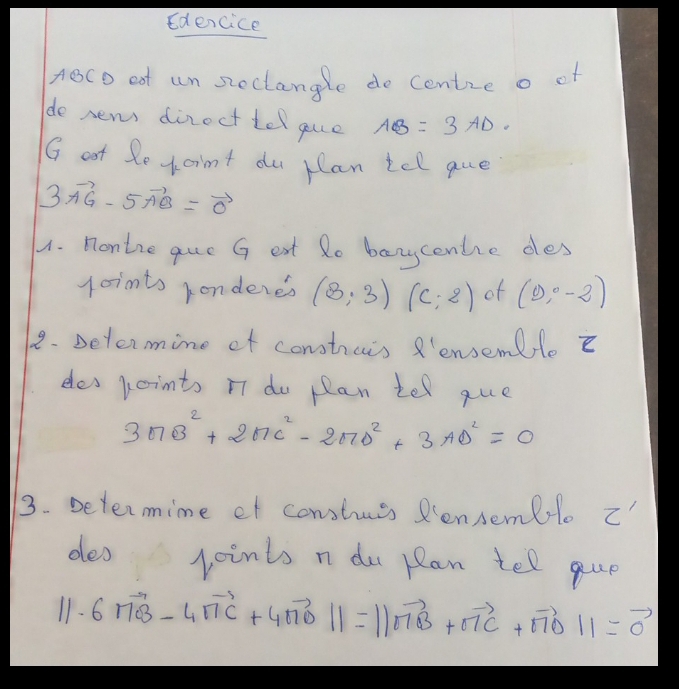 Exercice
ABCD est un rectangle de centre o et
de sens direct tel que AB = 3 AD.
G est le point du plan tel que
3AG⃗ - 5AB⃗ = 0⃗
1. Montre que G est le barycentre des
points ponderés (B; 3) (C; 2) et (D; -2)
2- Determine et construis l'ensemble Σ
des points M du plan tel que
3MB² + 2MC² - 2MD² + 3AD² = 0
3. Determine et construis l'ensemble Σ'
des points M du plan tel que
||-6MB⃗ - 4MC⃗ + 4MD⃗ || = ||MB⃗ + MC⃗ + MD⃗ || = 0⃗